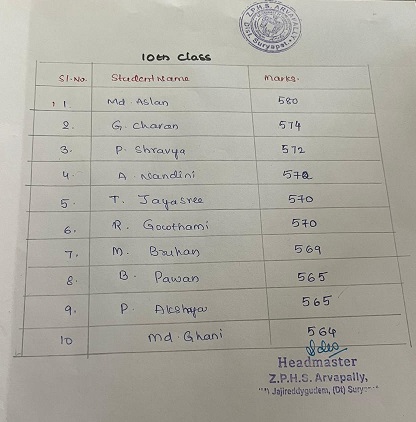 Z.P.H.S. ARVAPALLY
Dist. Suryapet.
10th Class
Sl.No. Student Name Marks.
1 1. Md Aslan 580
2. G. Charan 574
3. P. Shravya 572
4. A Nandini 572
5. T. Jayasree 570
6. R. Gowthami 570
7. M. Bruhan 569
8. B. Pawan 565
9. P. Akshaya 565
10 Md Ghani 564
Headmaster
Z.P.H.S. Arvapally,
Jajireddygudem, (Dt)